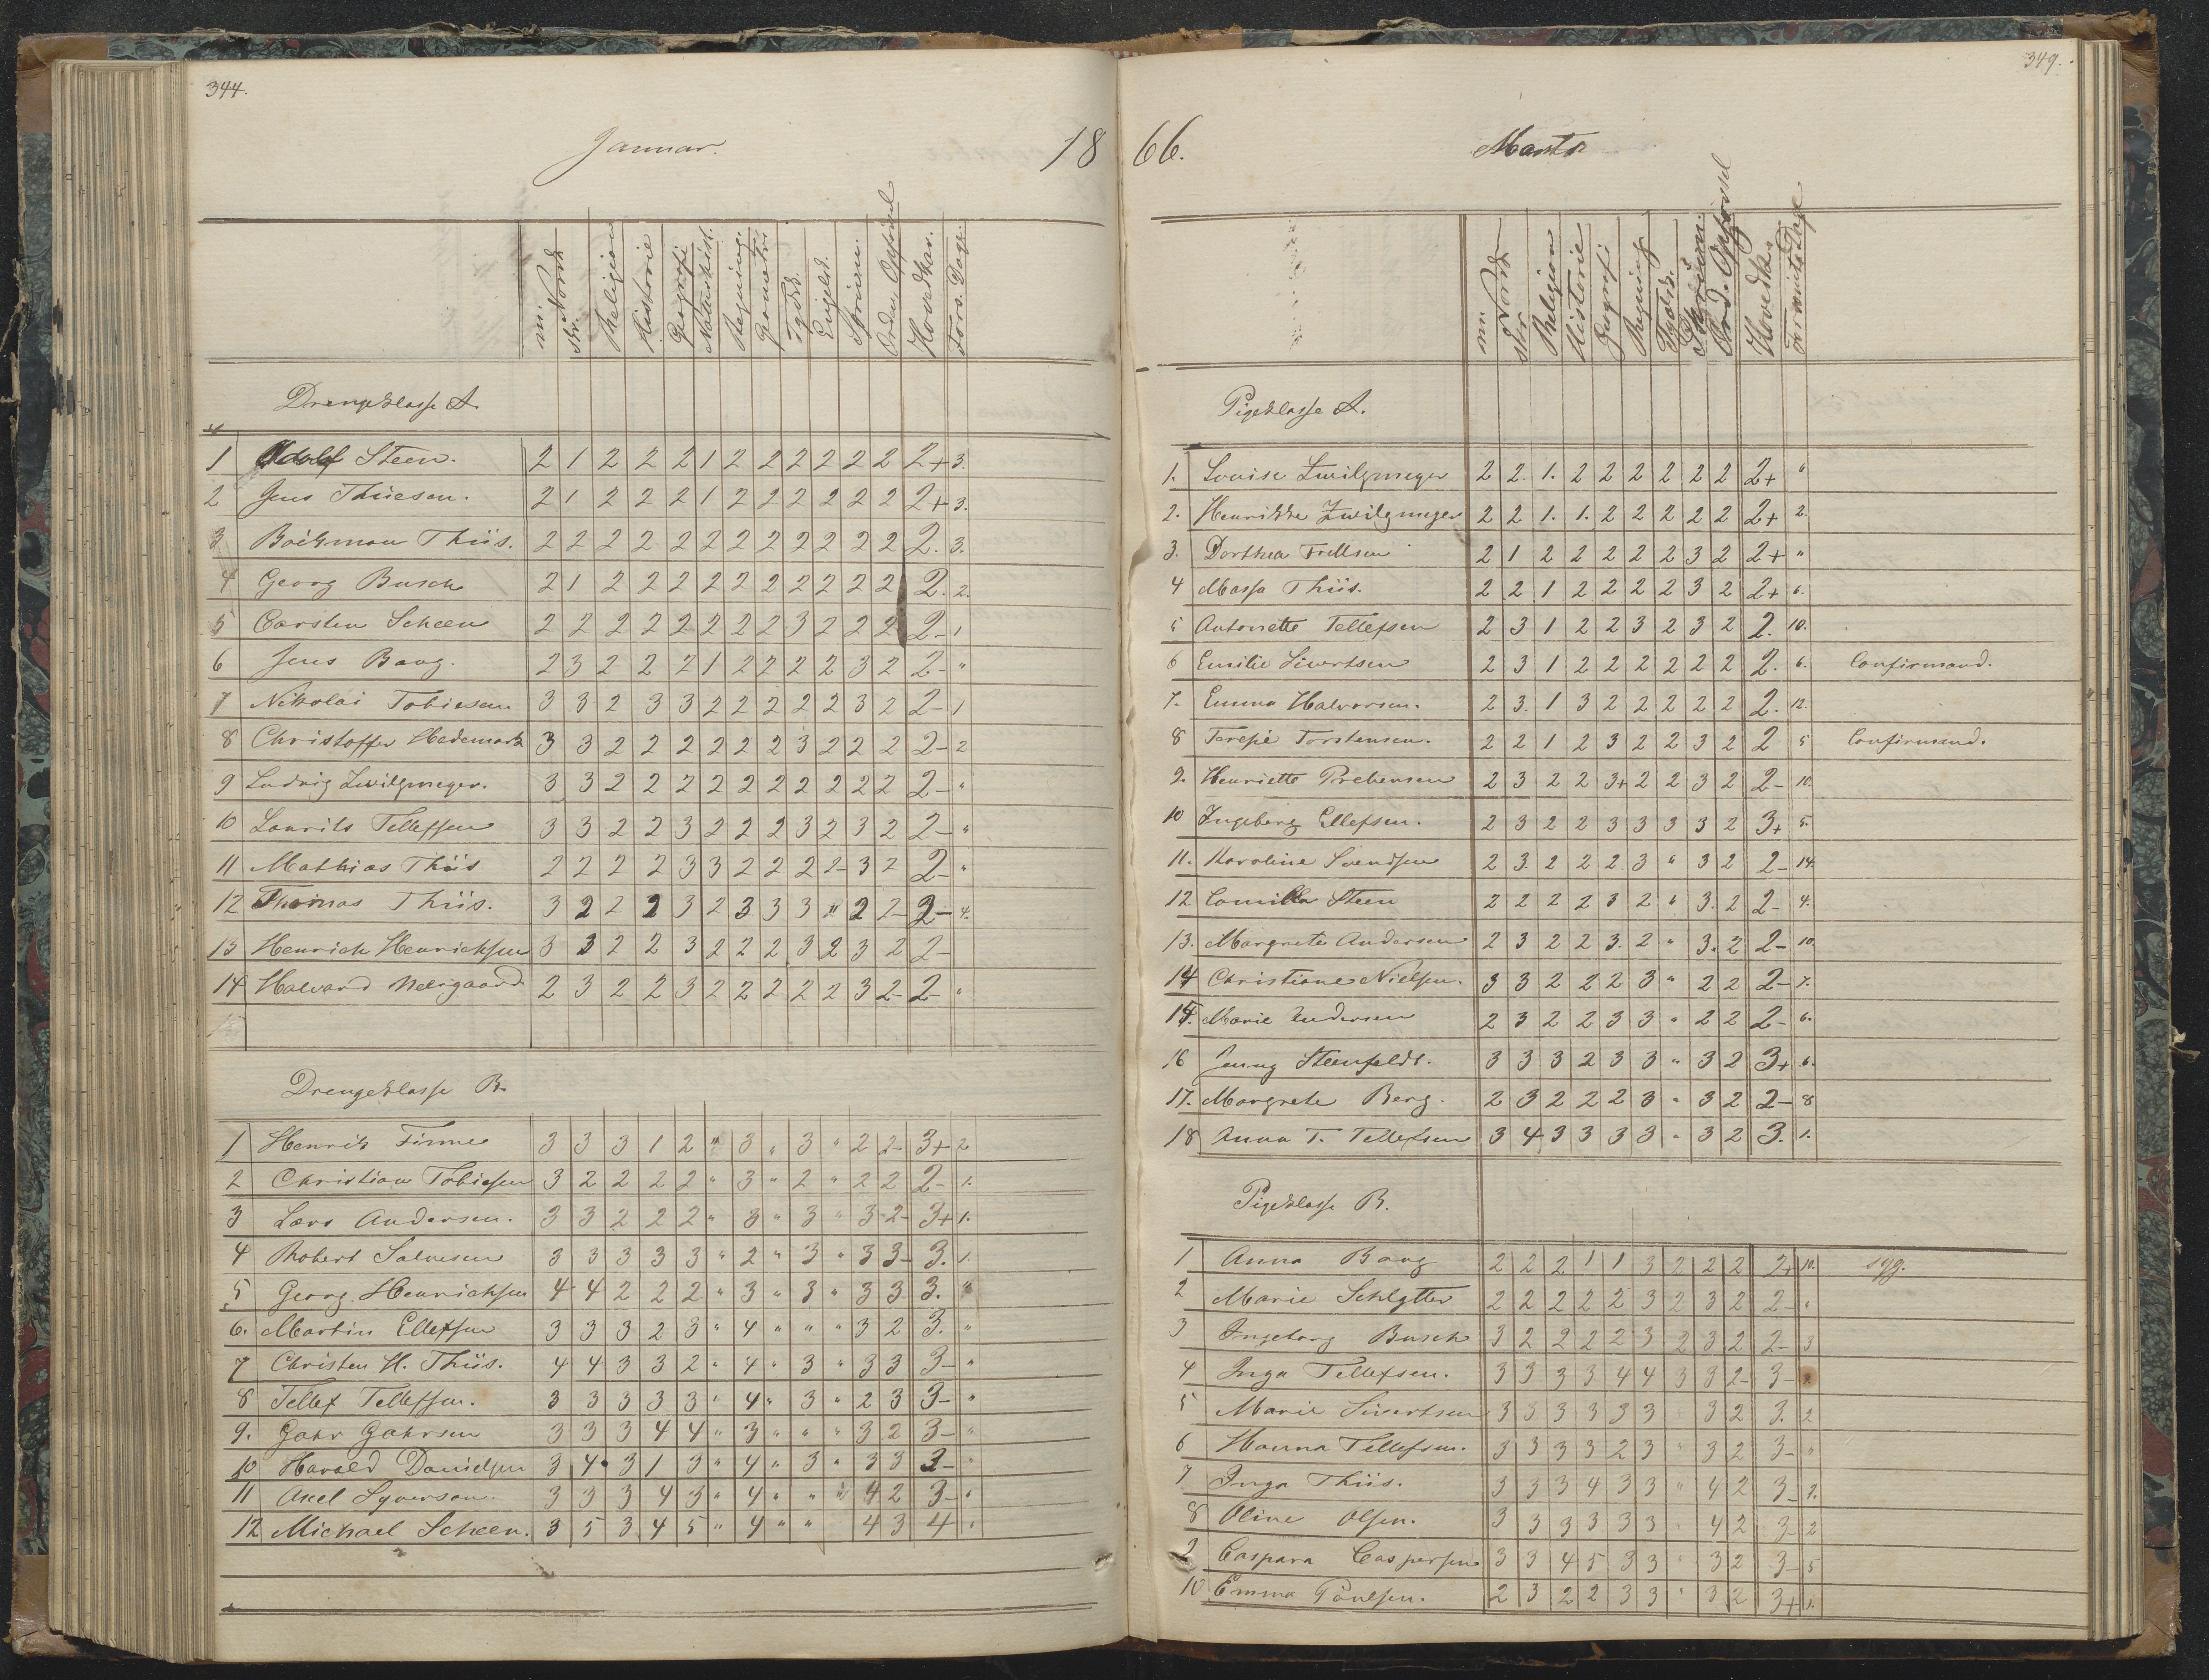 344.
Januar.
18
mi. Norsk skr. Religion Historie Geografi Naturhist. Regning. Geometri Tydsk. Engelsk. Skrivn. Orden, Opførsel Hovedkar. Fors. Dage.
Drengeklasse A.
1 Adolf Steen. 2 1 2 2 2 1 2 2 2 2 2 2 2+ 3.
2 Jens Thueson. 2 1 2 2 2 1 2 2 2 2 2 2 2+ 3.
3 Boickman Thiis. 2 2 2 2 2 2 2 2 2 2 2 2 2. 3.
4 Georg Busch 2 1 2 2 2 2 2 2 2 2 2 2 2. 2.
5 Carsten Scheen 2 2 2 2 2 2 2 2 3 2 2 2 2- 1
6 Jens Baag. 2 3 2 2 2 1 2 2 2 2 3 2 2- "
7 Nikolai Tobiesen 3 3 2 3 3 2 2 2 2 2 3 2 2- 1
8 Christoffer Hedemark 3 3 2 2 2 2 2 2 3 2 2 2 2- 2
9 Ludvig Zwilgmeyer. 3 3 2 2 2 2 2 2 2 2 2 2 2- "
10 Laurits Tellefsen 3 3 2 2 3 2 2 2 3 2 3 2 2- "
11 Mathias Thiis 2 2 2 2 3 3 2 2 2 2- 3 2 2- "
12 Thomas Thiis. 3 2 2 2 3 2 3 3 3 " 2 2- 2- 4.
13 Henrich Henrichsen 3 3 2 2 3 2 2 2 3 2 3 2 2-
14 Halvard Neergaard 2 3 2 2 3 2 2 2 2 2 3 2- 2- "
15
Drengeklasse B.
1 Henrik Finne 3 3 3 1 2 " 3 " 3 " 2 2- 3+ 2
2 Christian Tobiesen 3 2 2 2 2 " 3 " 2 " 2 2 2- 1.
3 Lars Andersen. 3 3 2 2 2 " 3 " 3 " 3 2- 3+ 1.
4 Robert Salvesen 3 3 3 3 3 " 2 " 3 " 3 3- 3. 1.
5 Georg Henrichsen 4 4 2 2 2 " 3 " 3 " 3 3 3. "
6. Martin Ellefsen 3 3 3 2 3 " 4 " " " 3 2 3. "
7 Christen H. Thiis. 4 4 3 3 2 " 4 " 3 " 3 3 3- "
8 Tellef Tellefsen. 3 3 3 3 3 " 4 " 3 " 2 3 3- "
9. Gahr Gahrsen 3 3 3 4 4 " 3 " " " 3 2 3- "
10 Harald Danielsen 3 4 3 1 3 " 4 " 3 " 3 3 3- "
11 Axel Syversen. 3 3 3 4 3 " 4 " " " 4 2 3- "
12 Michael Scheen. 3 5 3 4 5 " 4 " " 4 3 4 "
349.
66.
Marts
mi. Norsk skr Religion Historie Geografi Regning Tydsk. Skrivni. Ord. Opførsel Hovedka. Forsømte Dage
Pigeklasse A.
1. Louise Zwilgmeyer 2 2. 1. 2 2 2 2 2 2 2+ "
2. Henrikke Zwilgmeyer 2 2 1. 1. 2 2 2 2 2 2+ 2.
3. Dorthea Trellsen 2 1 2 2 2 2 2 3 2 2+ "
4 Massa Thiis. 2 2 1 2 2 2 2 3 2 2+ 6.
5 Antonette Tellefsen 2 3 1 2 2 3 2 3 2 2. 10.
6 Emilie Sivertsen 2 3 1 2 2 2 2 2 2 2. 6. Confirmand.
7. Emma Halvorsen. 2 3. 1 3 2 2 2 2 2 2. 12.
8 Terese Torstensen. 2 2 1 2 3 2 2 3 2 2 5 Confirmand.
9. Henriette Prebensen 2 3 2 2 3+ 2 2 3 2 2- 10.
10 Ingeborg Ellefsen. 2 3 2 2 3 3 3 3 2 3+ 5.
11. Karoline Svendsen 2 3 2 2 2 3 " 3 2 2- 14
12 Camilla Steen 2 2 2 2 3 2 " 3. 2 2- 4.
13. Margrete Andersen 2 3 2 2 3. 2 " 3. 2 2- 10.
14 Christiane Nielsen. 3 3 2 2 2 3 " 2 2 2- 7.
15. Marie Andersen 2 3 2 2 3 3 " 2 2 2- 6.
16 Jenny Steenfeldt. 3 3 3 2 3 3 " 3 2 3+ 6.
17. Margrete Berg. 2 3 2 2 2 3 " 3 2 2- 8
18 Anna T. Tellefsen 3 4 3 3 3 3 " 3 2 3. 1.
Pigeklasse B.
1 Anna Baag 2 2 2 1 1 3 2 2 2 2+ 10. syg.
2 Marie Schlytter 2 2 2 2 2 3 2 3 2 2- "
3 Ingeborg Busch 3 2 2 2 2 3 2 3 2 2- 3
4 Inga Tellefsen. 3 3 3 3 4 4 3 3 2- 3-
5 Marie Sivertsen 3 3 3 3 3 3 " 3 2 3. 2
6 Hanna Tellefsen. 3 3 3 3 2 3 " 3 2 3- "
7 Inga Thiis. 3 3 3 4 3 3 " 4 2 3- 2.
8 Oline Olsen. 3 3 3 3 3 3 " 4 2 3- 2
9 Caspara Caspersen 3 3 4 5 3 3 " 3 2 3- 5
10 Emma Poulsen. 2 3 2 2 3 3 " 3 2 3+ 1.